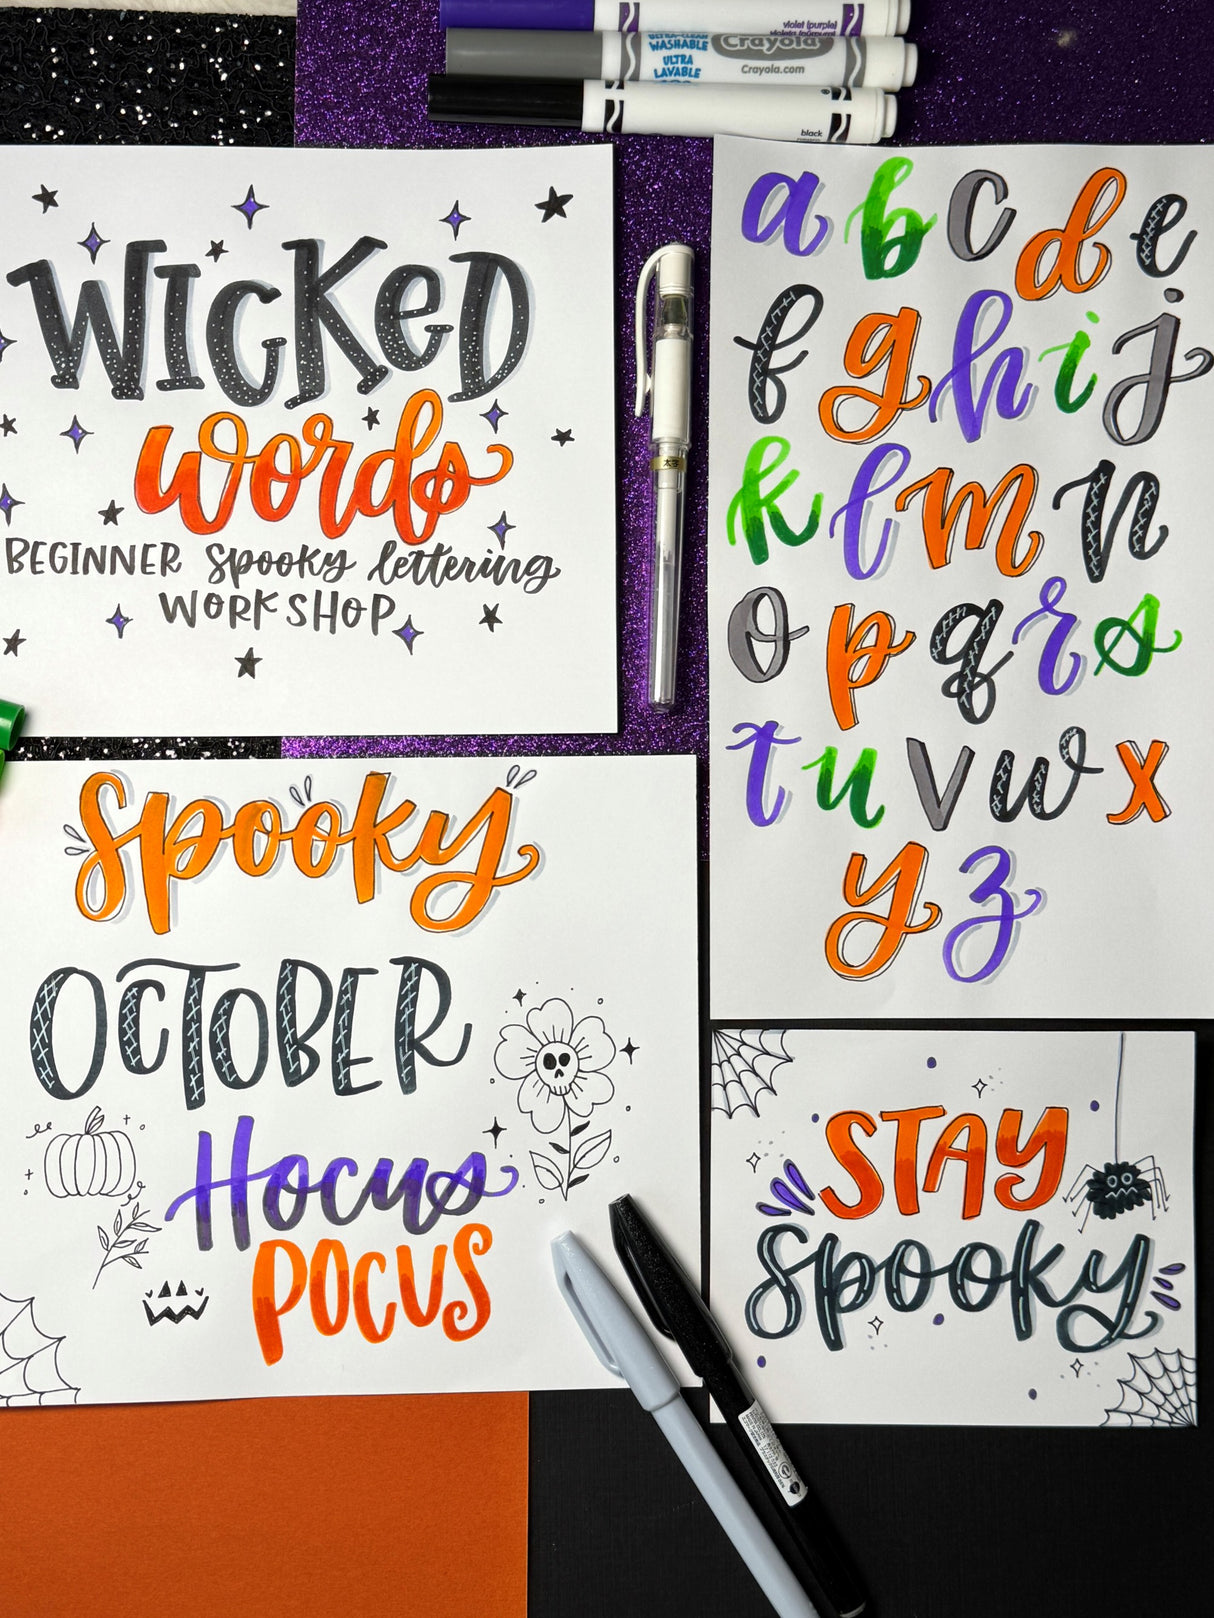 violet (purple)
ULTRA-CLEAN
WASHABLE
ULTRA
LAVABLE
Crayola
Crayola.com
black
WICKeD
words
BEGINNER spooky lettering
WORKSHOP
a b c d e
f g h i j
k l m n
o p q r s
t u v w x
y z
太字
spooky
OCTOBER
Hocus
POCUS
STAY
spooky